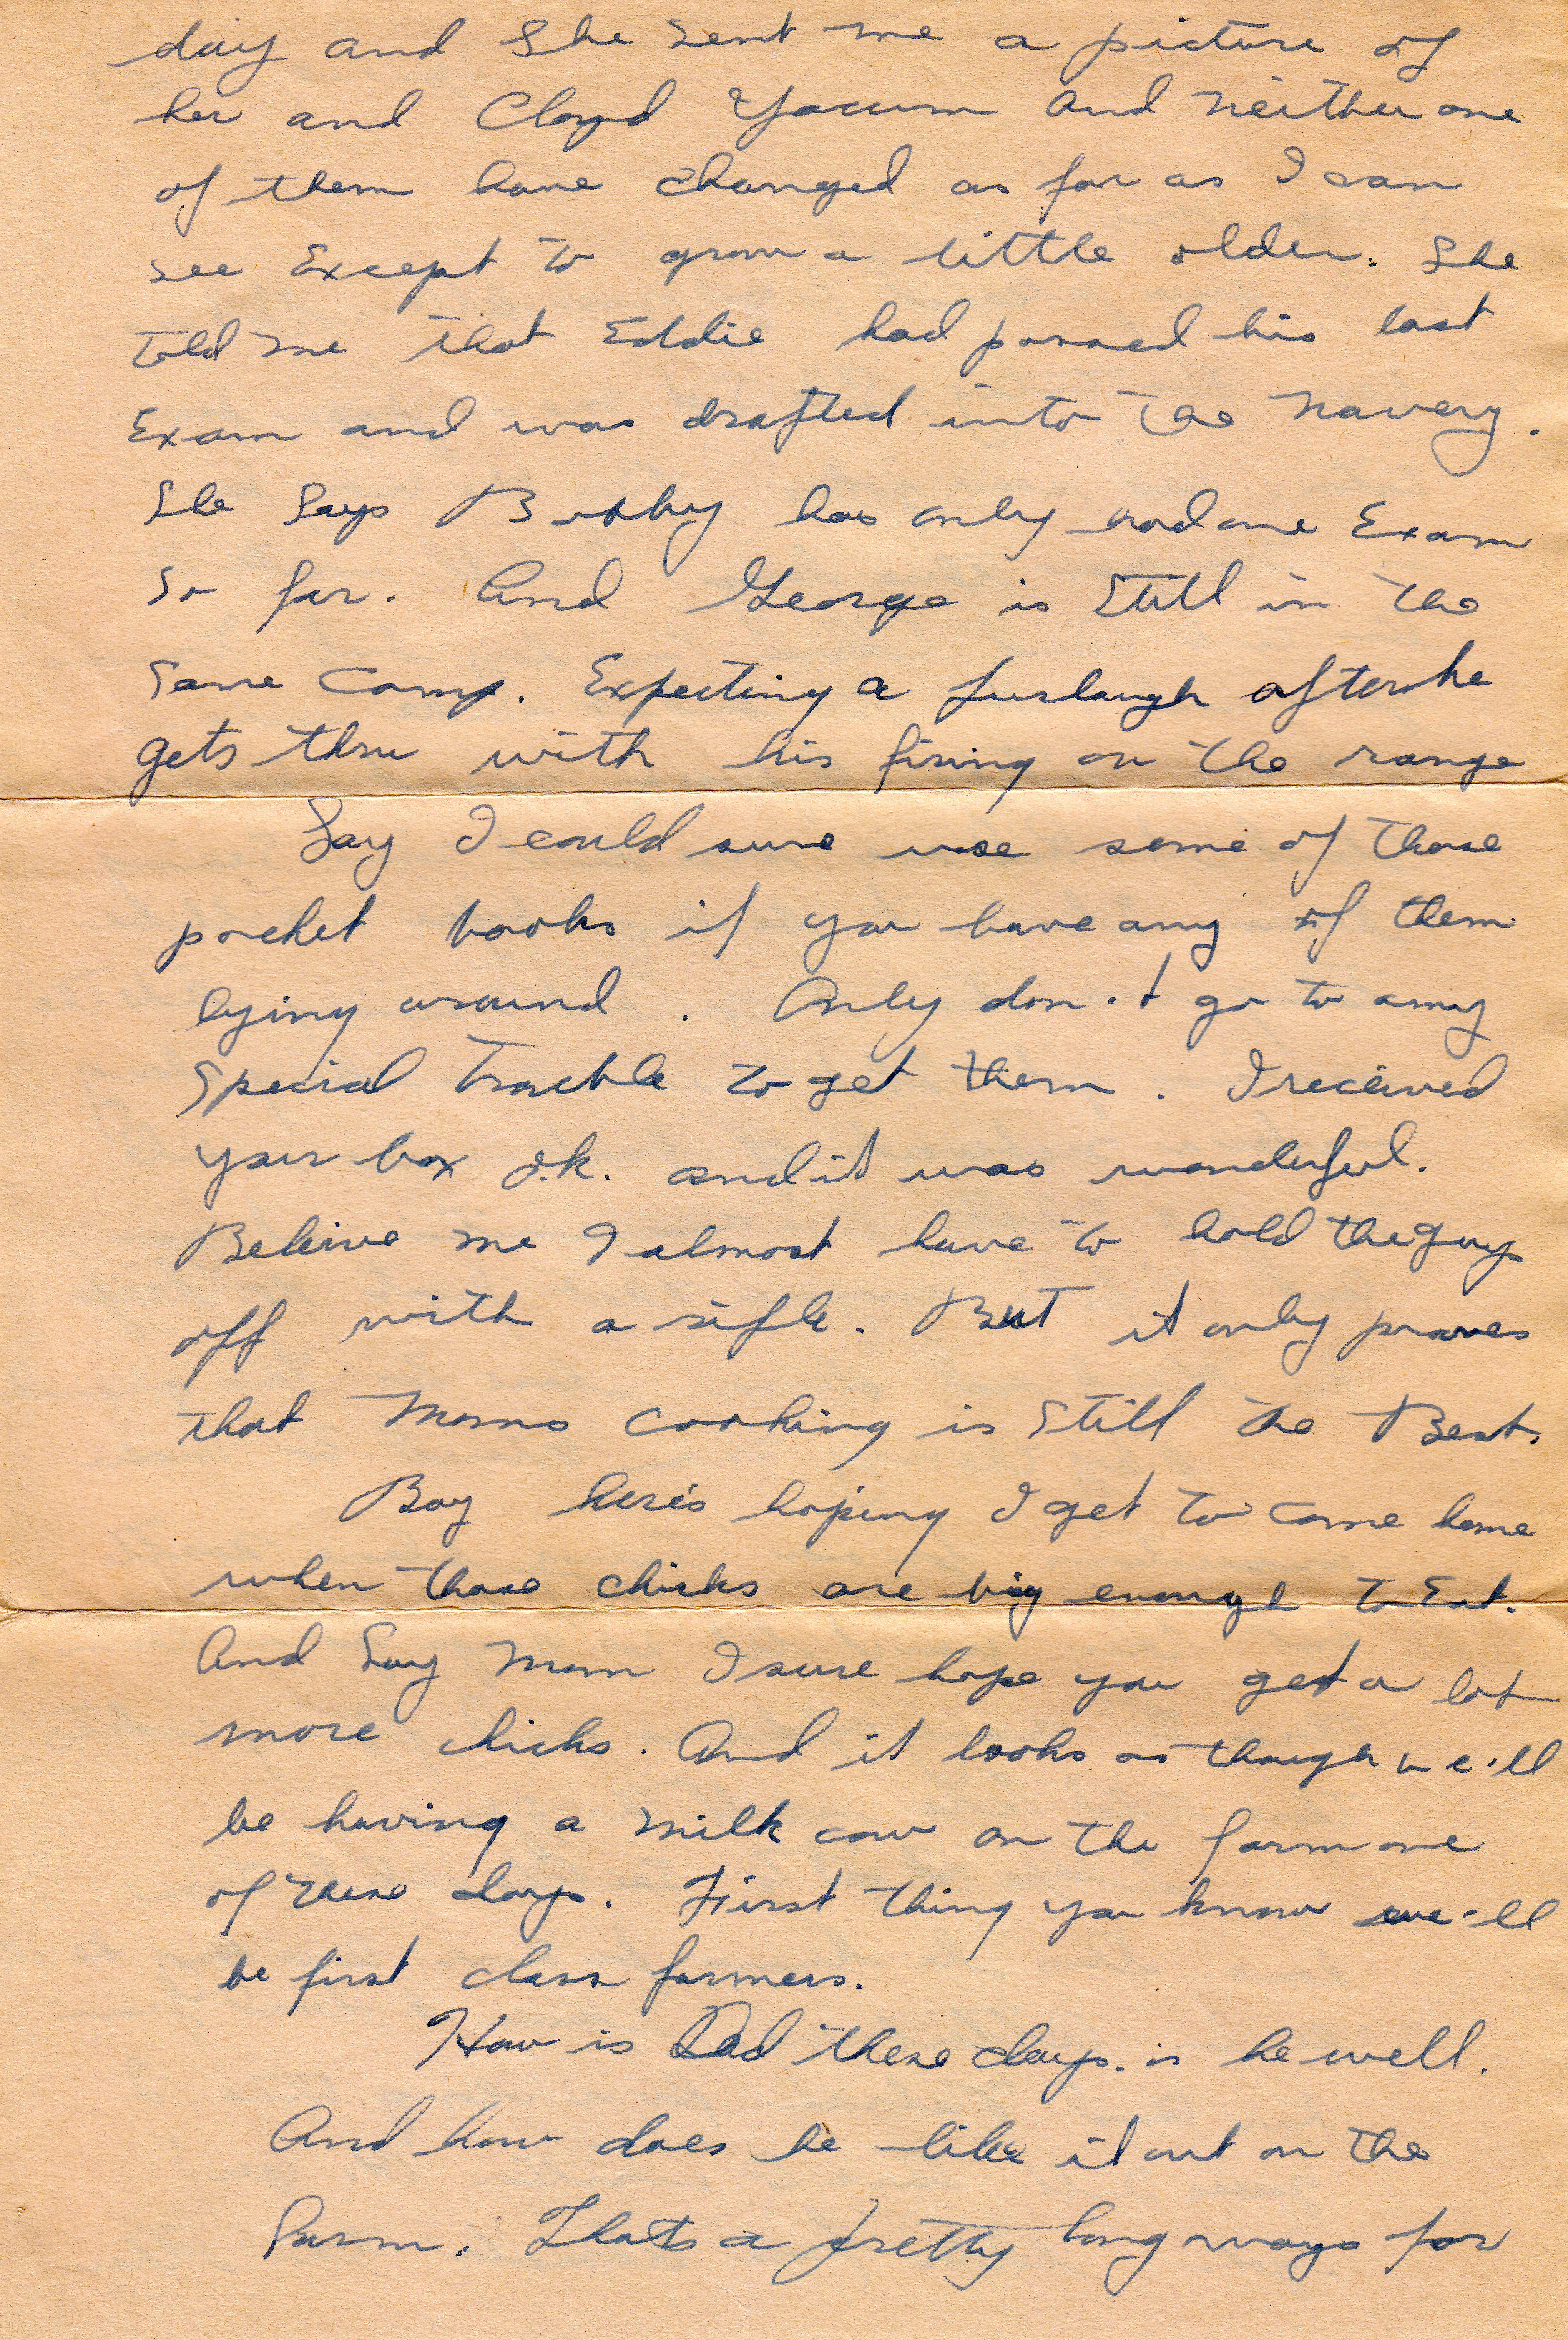 day and She sent me a picture of
her and Cloyd Yocum and neither one
of them have changed as far as I can
see Except to grow a little older. She
told me that Eddie had passed his last
Exam and was drafted into the Navery.
She Says Bobby has only had one Exam
So far. And George is Still in the
Same Camp. Expecting a furlaugh after he
gets thru with his firing on the range
Say I could sure use some of those
pocket books if you have any of them
lying around. Only don't go to any
Special Trouble to get them. I received
your box o.k. and it was wonderful.
Beleive me I almost have to hold the guys
off with a rifle. But it only proves
that Moms cooking is Still the Best.
Boy here's hoping I get to come home
when those chicks are big enough to Eat.
And Say Mom I sure hope you get a lot
more chicks. And it looks as though we'll
be having a milk cow on the farm one
of these days. First thing you know we'll
be first class farmers.
How is Dad these days. is he well.
And how does he like it out on the
Farm. Thats a pretty long ways for